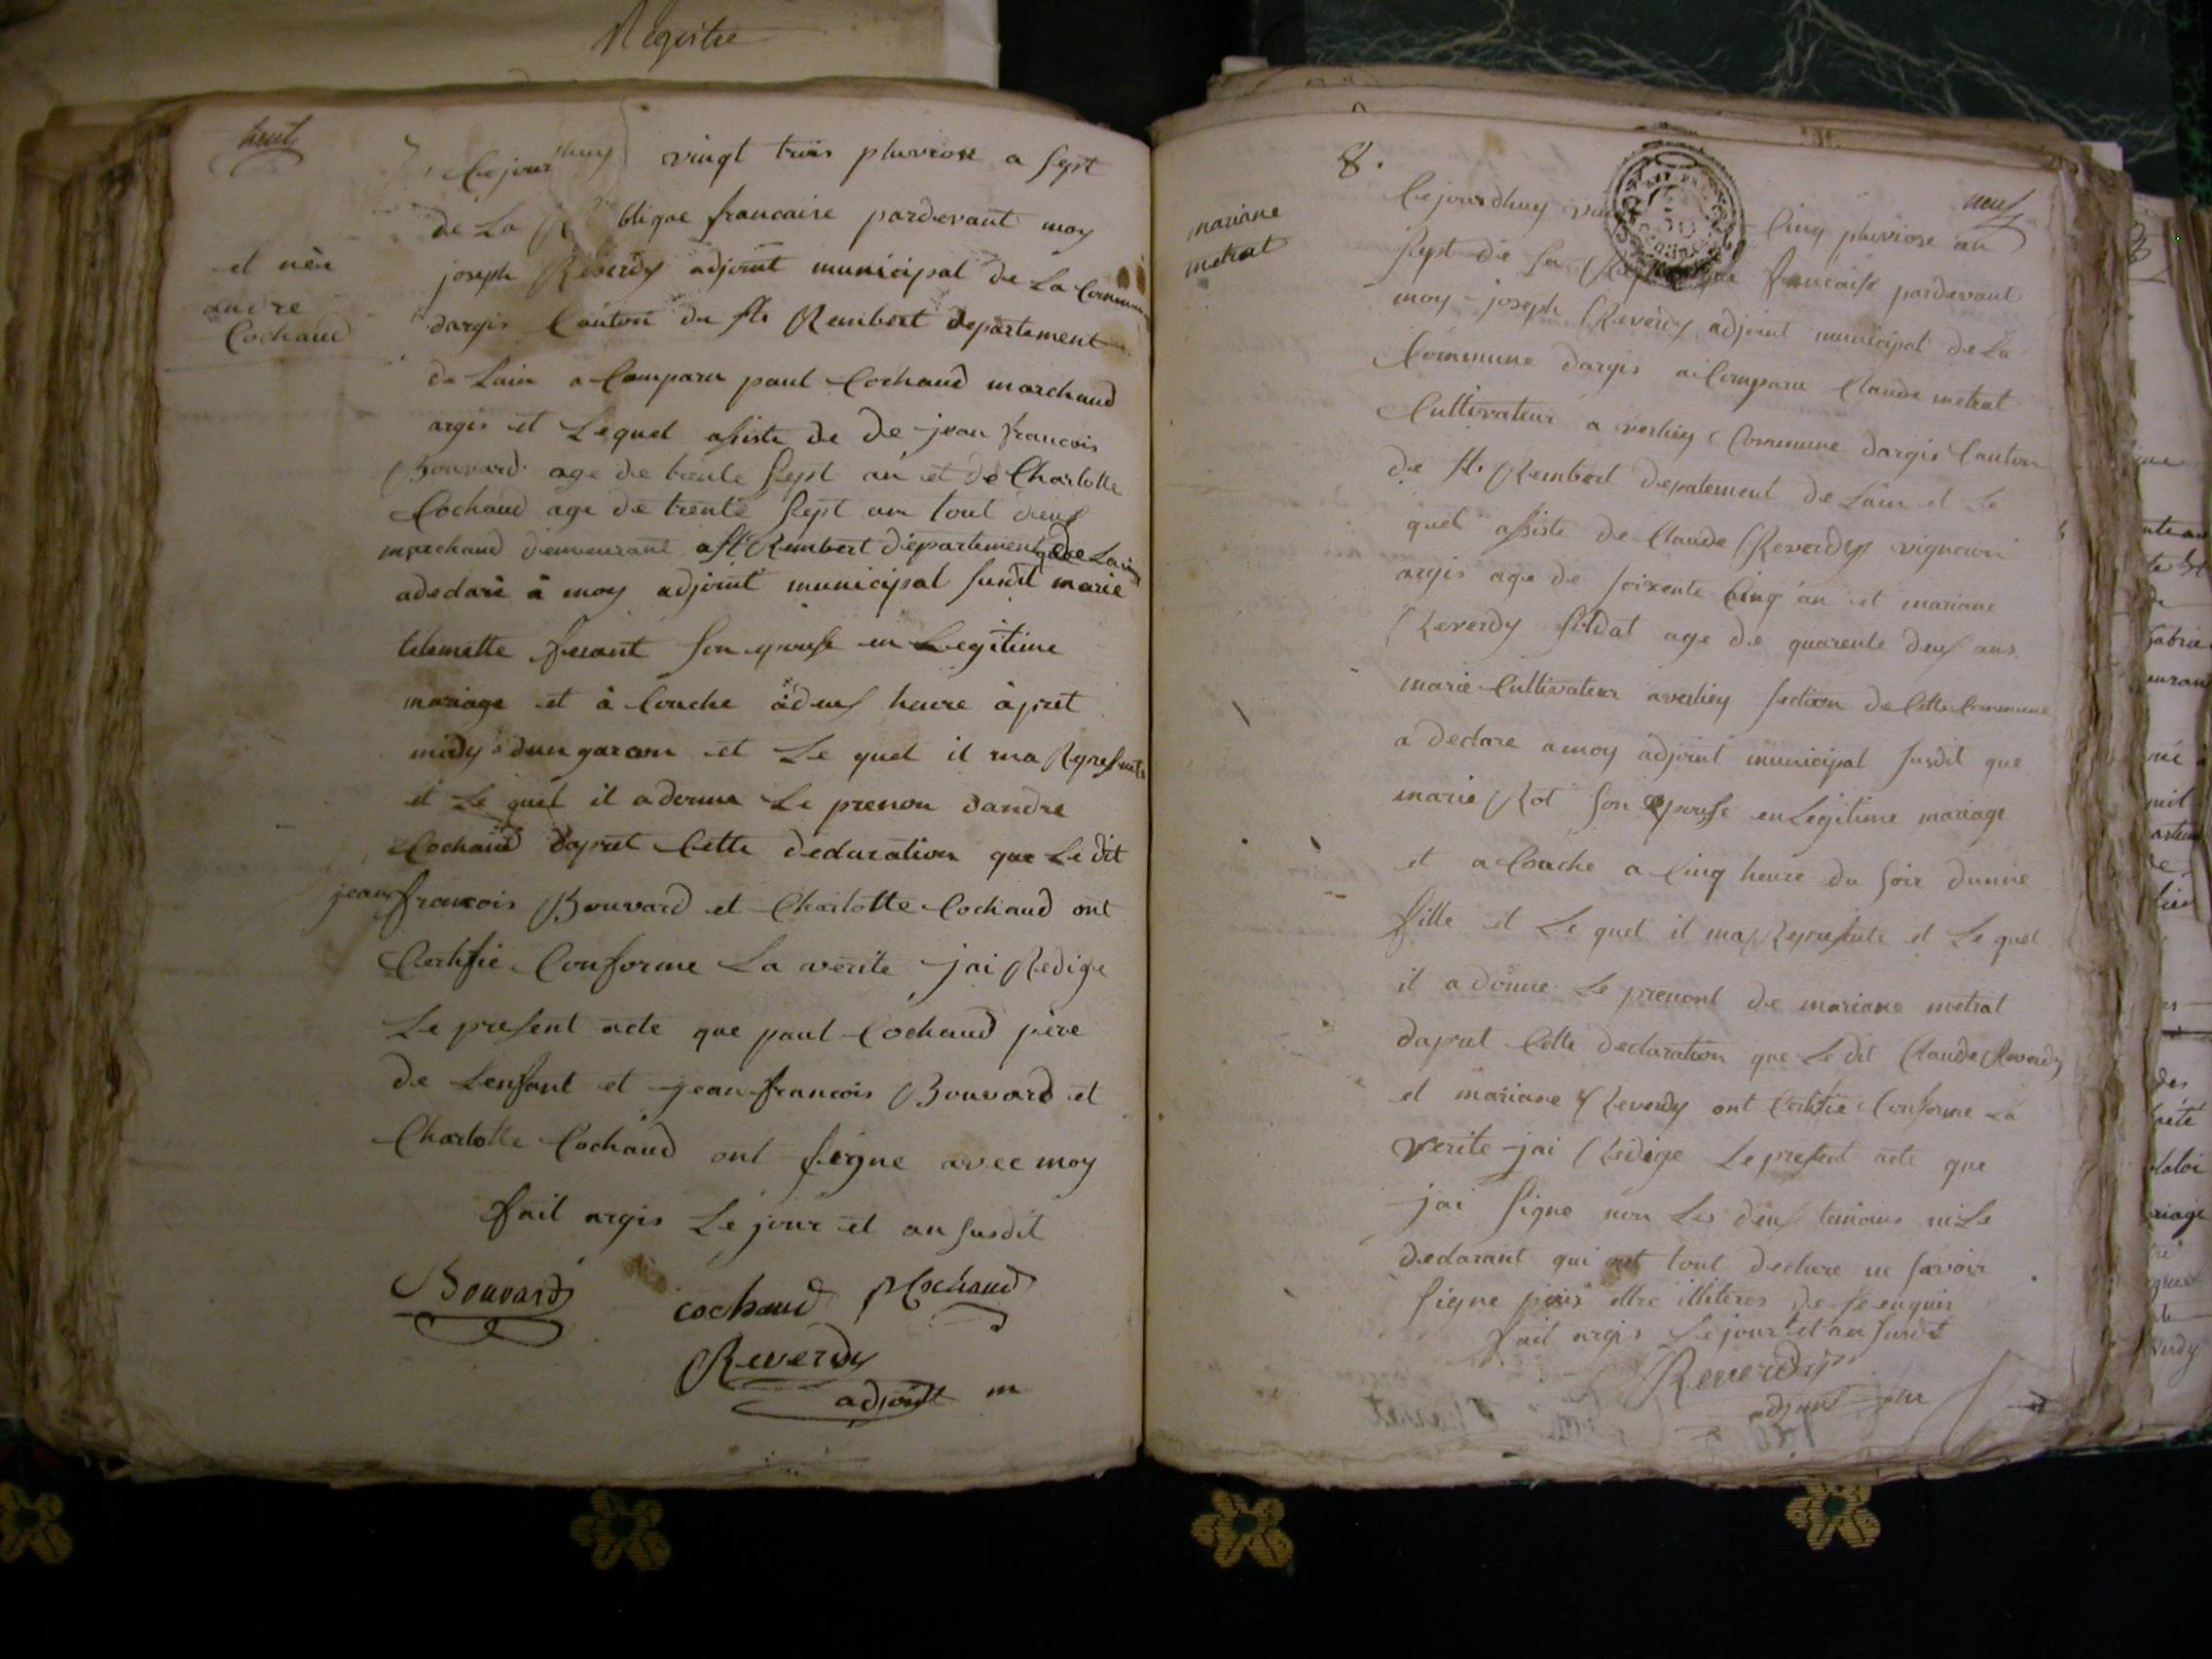 Registre
huit
7
Cejourdhuy vingt trois pluviose a sept
de La blique francaise pardevant moy
et née
andre
Cochaud
joseph Reverdy adjoint municipal de La Commune
dargis Canton de St Rembert departement
de Lain a Comparu paul Cochaud marchand
argis et Lequel asiste de De jean francois
Bouvard age de trente sept an et de Charlotte
Cochaud age de trente sept an tout deux
marchand demeurant a St Rembert departement de Lain
adeclaré à moy adjoint municipal susdit marie
son epouse en Legitime
mariage et à Couche à deux heure àpret
midy dun garcon et Le quel il ma Represente
et Le quel il adonne Le prenon dandre
Cochaud dapret Cette declaration que Le dit
jean francois Bouvard et Charlotte Cochaud ont
Certifie Conforme La verite jai Redige
Le present acte que paul Cochaud père
de Lenfant et jean francois Bouvard et
Charlotte Cochaud ont signe avec moy
fait argis Le jour et an susdit
Bouvard cochaud Cochaud
Reverdy
adjoint m
8.
neuf
mariane
metrat
Cejourdhuy Cinq pluviose an
sept de La Republique francaise pardevant
moy joseph Reverdy adjoint municipal de La
Commune dargis a Comparu Claude metrat
Cultivateur a Commune dargis Canton
de St Rembert depatement de Lain et Le
quel assiste de Claude Reverdy vigneron
argis age de soixente Cinq an et mariane
Reverdy soldat age de quarente deux ans
marie Cultivateur section de Cette Commune
a declare amoy adjoint municipal susdit que
marie Rot son epouse en Legitime mariage
et a Couche a Cinq heure du soir dunne
fille et Le quel il ma Represente et Le quel
il a donne Le prenont de mariane metrat
dapret Cette declaration que Le dit Claude Reverdy
et mariane Reverdy ont Certifie Conforme La
verite jai Redige Le present acte que
jai signe non Les deux temoins ni Le
declarant qui ont tout declare ne savoir
signe illiteres de se enquis
fait argis Le jour et an susdit
Reverdy
adjoint